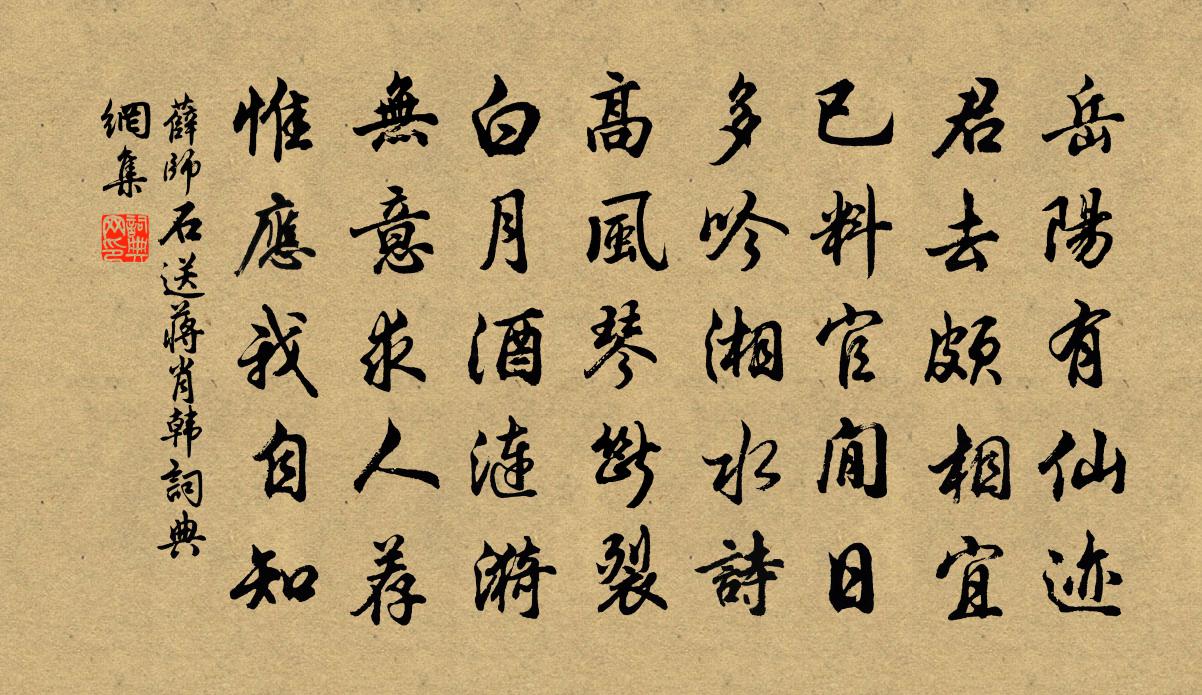 岳陽有仙迹
君去頗相宜
已料官閒日
多吟湘水詩
高風琴斷裂
白月酒漣漪
無意求人荐
惟應我自知
薛師石送蔣肖韩詞典
網集
詞典網印